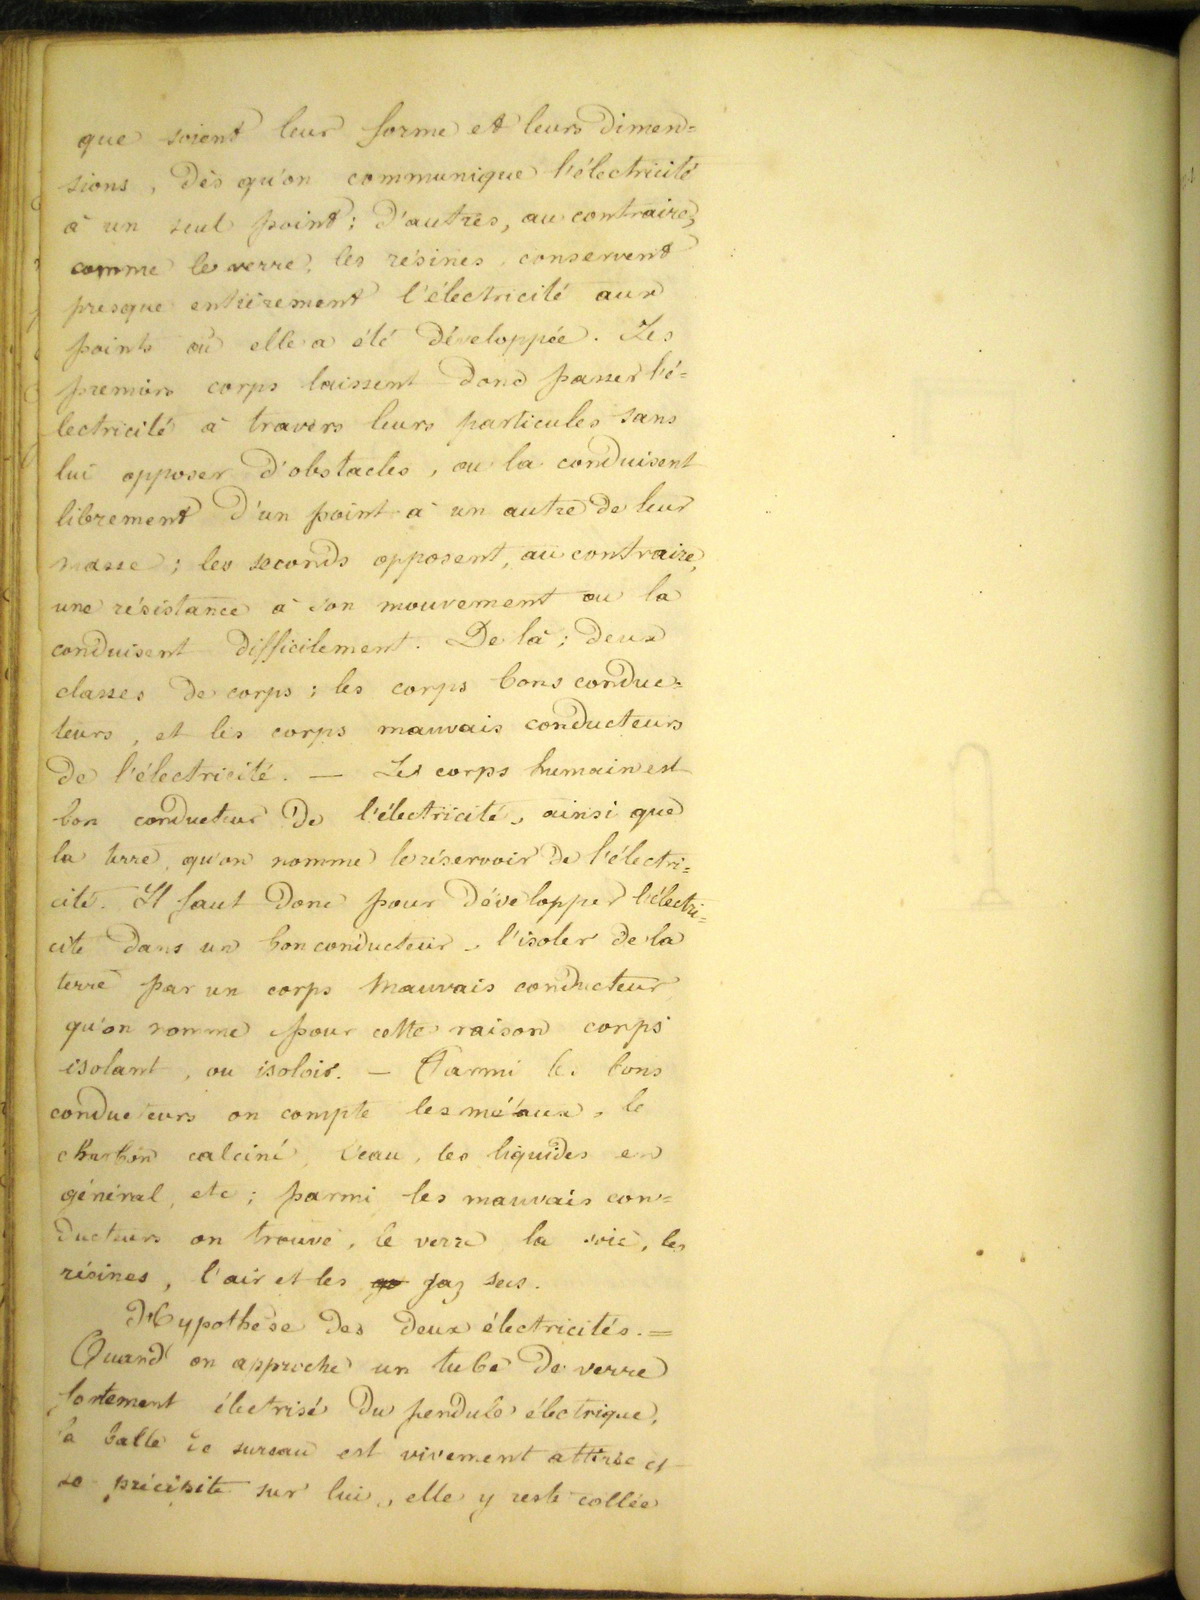 que soient leur forme et leurs dimen=
sions, dès qu'on communique l'électricité
à un seul point; d'autres, au contraire,
comme le verre, les résines, conservent
presque entièrement l'électricité aux
points où elle a été développée. Les
premiers corps laissent donc passer l'é=
lectricité à travers leurs particules sans
lui opposer d'obstacles, ou la conduisent
librement d'un point à un autre de leur
masse; les seconds opposent, au contraire,
une résistance à son mouvement ou la
conduisent difficilement. De là; deux
classes de corps; les corps bons conduc=
teurs, et les corps mauvais conducteurs
de l'électricité. — Le corps humain est
bon conducteur de l'électricité, ainsi que
la terre, qu'on nomme le réservoir de l'électri=
cité. Il faut donc pour développer l'électri=
cité dans un bon conducteur, l'isoler de la
terre par un corps mauvais conducteur
qu'on nomme pour cette raison corps
isolant, ou isoloir. — Parmi les bons
conducteurs on compte les métaux, le
charbon calciné, l'eau, les liquides en
général, etc; parmi les mauvais con=
ducteurs on trouve, le verre la soie, les
résines, l'air et les gaz secs.
Hypothèse des deux électricités. =
Quand on approche un tube de verre
fortement électrisé du pendule électrique,
la balle de sureau est vivement attirée et
se précipite sur lui, elle y reste collée